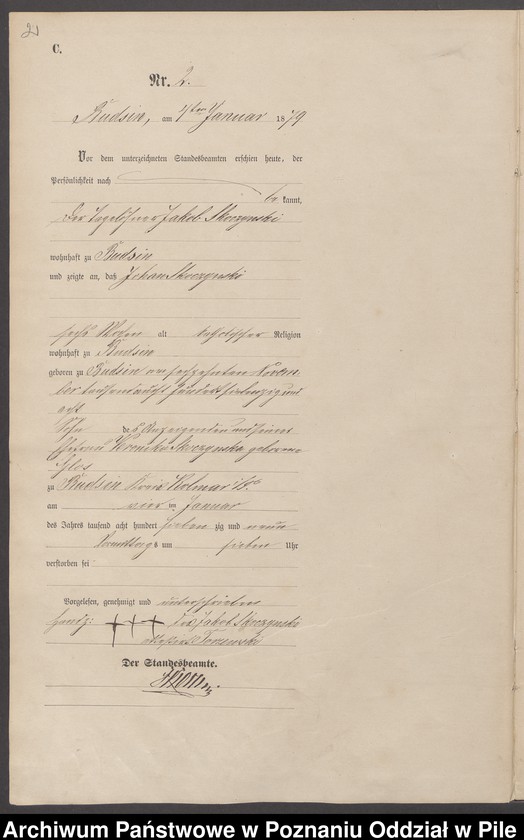 2
C.
Nr. 2.
Budsin, am 4ten Januar 1879
Vor dem unterzeichneten Standesbeamten erschien heute, der
Persönlichkeit nach
be kannt,
der Tagelöhner Jakob Skrzynski
wohnhaft zu Budsin
und zeigte an, daß Johan Skrzynski
sechs Wochen alt katholischer Religion
wohnhaft zu Budsin
geboren zu Budsin am sechzehnten Novem
ber tausend acht hundert siebenzig und
acht
Sohn des Anzeigenden und seiner
Ehefrau Skrzynska geborene
zu Budsin Kreis Kolmar i/P.
am vier ten Januar
des Jahres tausend acht hundert sieben zig und neun
Vormittags um sieben Uhr
verstorben sei
Vorgelesen, genehmigt und unterschrieben
Handz: +++ des Jakob Skrzynski
Der Standesbeamte.
Archiwum Państwowe w Poznaniu Oddział w Pile